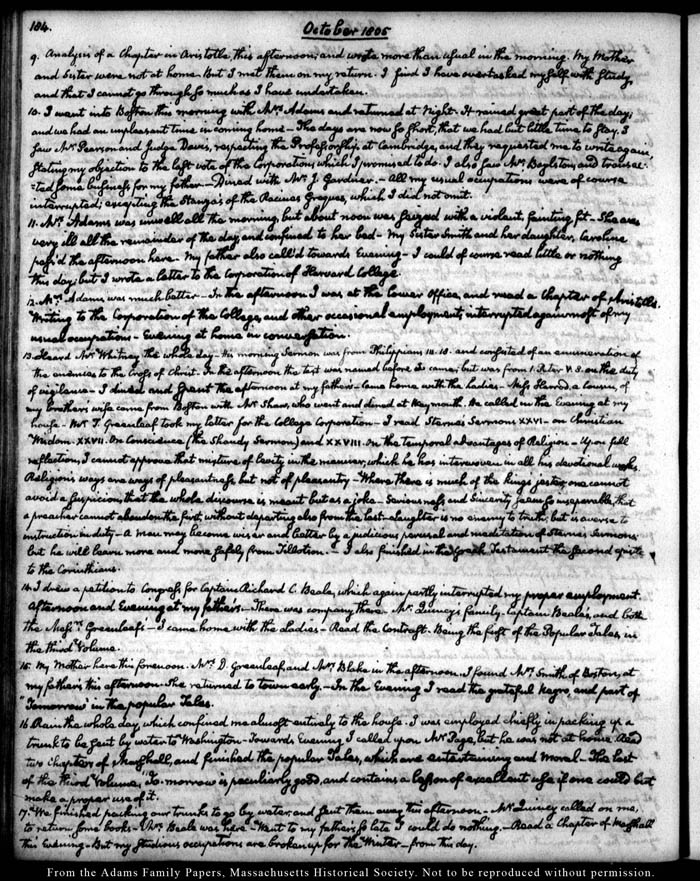 184.
October 1805
9. Analysis of a Chapter in Aristotle this afternoon; and wrote more than usual in the morning. My Mother
and Sister were not at home. But I met them on my return. I find I have overtasked myself with Study,
and that I cannot go through so much as I have undertaken.
10. I went into Boston this morning with Mrs. Adams and returned at Night. It rained great part of the day,
and we had an unpleasant time in coming home — The days are now so short, that we had but little time to stay. I
saw Mr. Pearson and Judge Davis, respecting the Professorship at Cambridge, and they requested me to write again
stating my objection to the last vote of the Corporation, which I promised to do. I also saw Mr. Boylston, and transac
=ted some business for my father — Dined with Mr. J. Gardner. — All my usual occupations were of course
interrupted; excepting the Stanzas of the Racines Grecques, which I did not omit.
11. Mrs. Adams was unwell all the morning, but about noon was seized with a violent fainting fit — She was
very ill all the remainder of the day, and confined to her bed — My Sister Smith and her daughter, Caroline
pass'd the afternoon here. My father also call'd towards Evening — I could of course read little or nothing
this day; but I wrote a letter to the Corporation of Harvard College.
12. Mrs. Adams was much better — In the afternoon I was at the lower Office, and read a Chapter of Aristotle.
Writing to the Corporation of the College, and other occasional employments, interrupted again most of my
usual occupations — Evening at home in conversation.
13. Heard Mr. Whitney the whole day — His morning Sermon was from Philippians III. 18. and consisted of an enumeration of
the enemies to the Cross of Christ. In the afternoon the text was named before I came; but was from 1. Peter V. 8. on the duty
of vigilance — I dined and spent the afternoon at my father's — Came home with the Ladies — Miss Harrod, a cousin, of
my brothers wife came from Boston with Mr. Shaw, who went and dined at Weymouth. He called in the Evening at my
house — Mr. T. Greenleaf took my letter for the College Corporation — I read Sterne's Sermons XXVI — on Christian
Wisdom. XXVII. On Conscience (the Shandy Sermon) and XXVIII. On the temporal advantages of Religion — Upon full
reflection, I cannot approve that mixture of levity in the manner, which he has interwoven in all his devotional works.
Religion's ways are ways of pleasantness but not of pleasantry — Where there is much of the kings jester, one cannot
avoid a suspicion, that the whole discourse is meant but as a joke — Seriousness and Sincerity seem so inseparable, that
a preacher cannot abandon the first, without departing also from the last — Laughter is no enemy to truth; but is averse to
instruction in duty — A man may become wiser and better by a judicious perusal and meditation of Sterne's Sermons
but he will learn more and more safely, from Tillotson. — I also finished in the Greek Testament the second epistle
to the Corinthians.
14. I drew a petition to Congress for Captain Richard C. Beale, which again partly interrupted my proper employment.
Afternoon and Evening at my father's. — There was company there. Mr. Quincy's family. Captain Beale's, and both
the Messrs. Greenleafs — I came home with the Ladies — Read the Contrast. Being the first of the Popular Tales, in
the third Volume.
15. My Mother here this forenoon. Mrs. D. Greenleaf, and Mrs. Blake in the afternoon. I found Mrs. Smith of Boston, at
my father's this afternoon. She returned to town early. — In the Evening I read the grateful Negro, and part of
Tomorrow in the popular Tales.
16. Rain the whole day, which confined me almost entirely to the house. I was employed chiefly in packing up a
trunk to be sent by water to Washington — Towards Evening I called upon Mr. Page, but he was not at home. Read
two Chapters of Marshall, and finished the popular Tales, which are entertaining and moral — The last
of the third Volume, To-morrow is peculiarly good, and contains a lesson of excellent use if one could but
make a proper use of it.
17. We finished packing our trunks to go by water, and sent them away this afternoon — Mr. Quincy called on me,
to return some books — Mrs. Beale was here — Went to my father's so late I could do nothing. — Read a Chapter of Marshall
this Evening — But my studious occupations are broken up for the Winter — from this day.
From the Adams Family Papers, Massachusetts Historical Society. Not to be reproduced without permission.